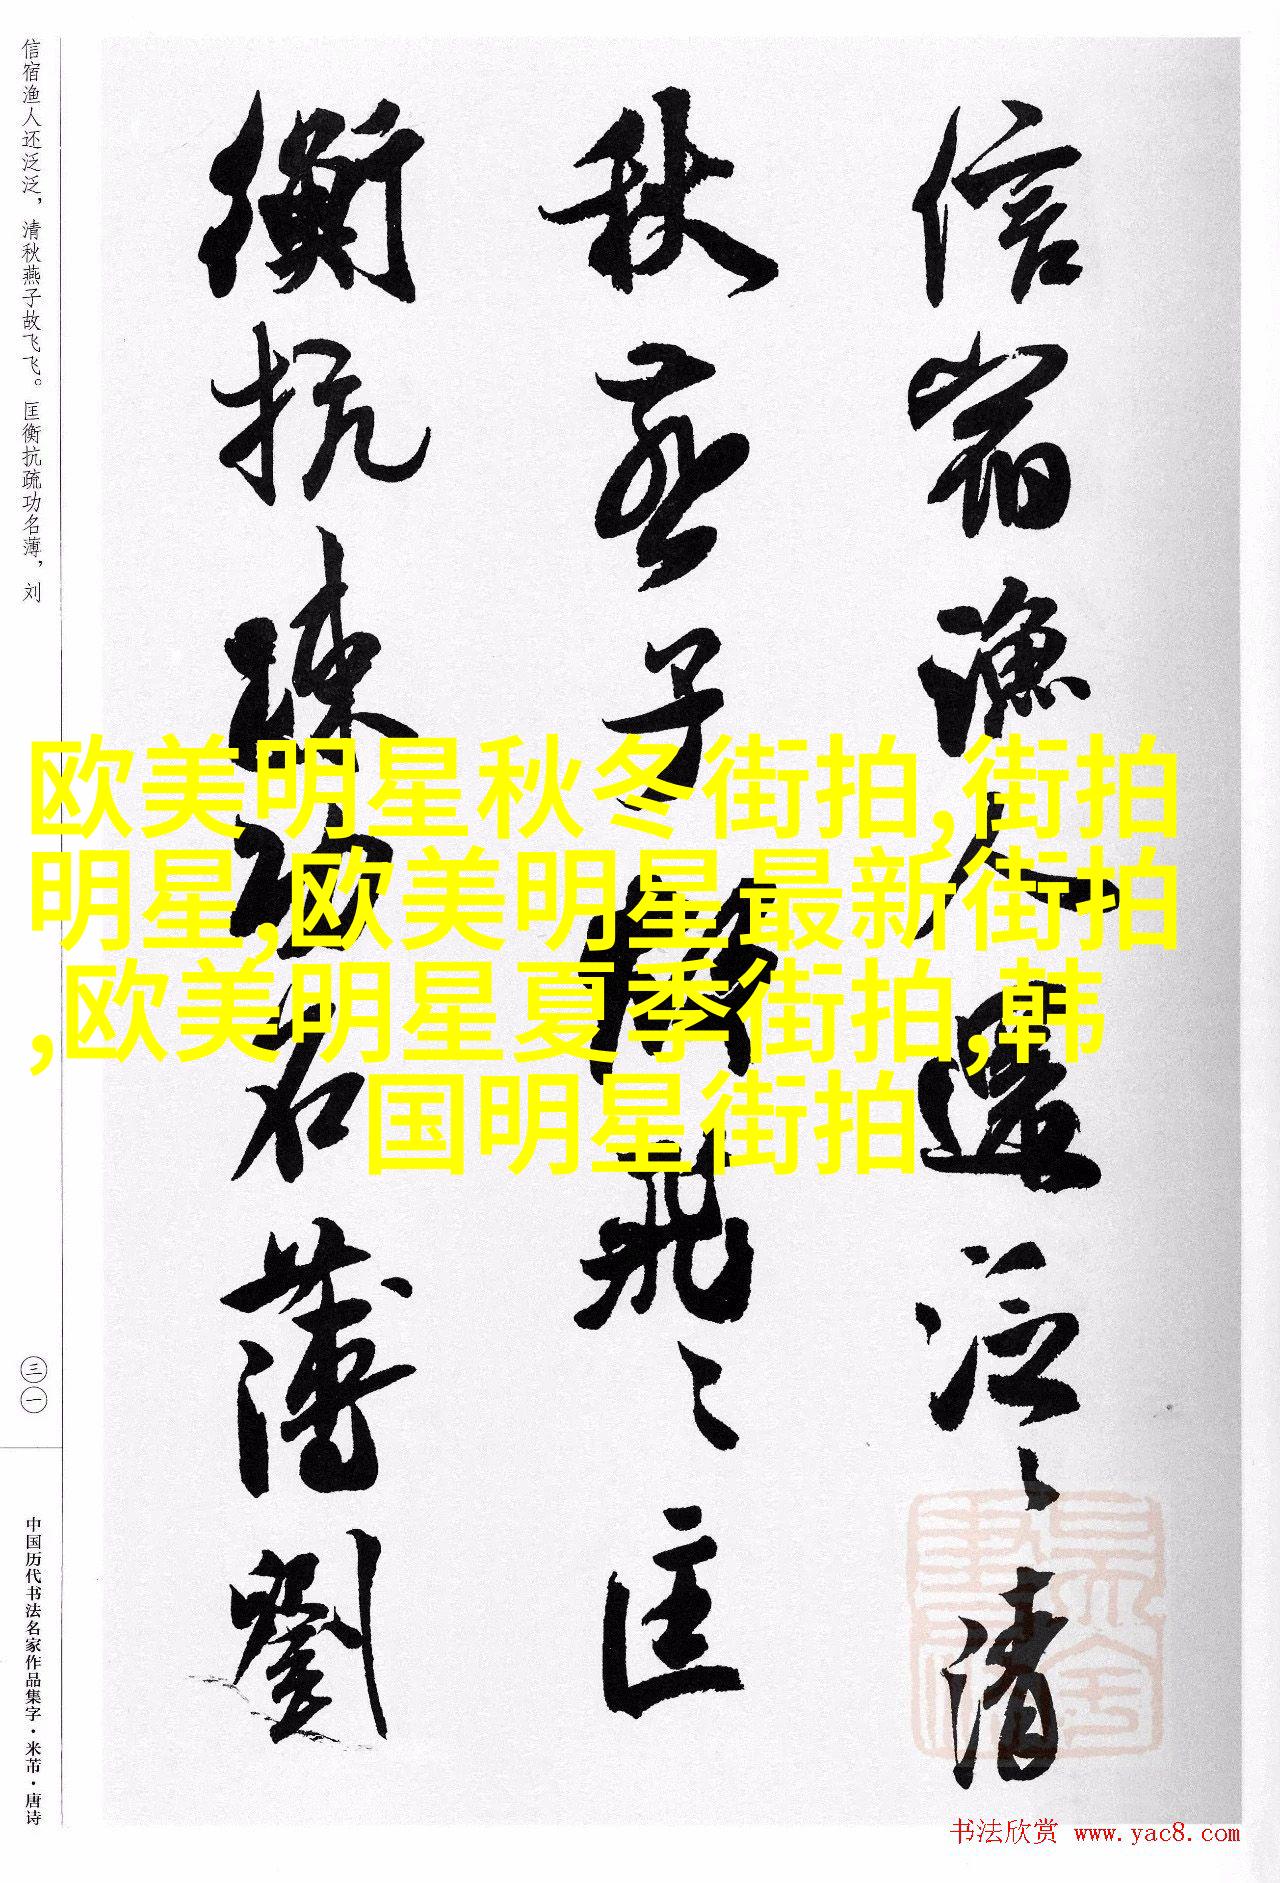 信宿渔人还泛泛，清秋燕子故飞飞。匡衡抗疏功名薄，刘
三一
中国历代书法名家作品集字·米芾·唐诗
信宿漁人還泛〻清
秋燕子故飛〻匡
衡抗疏功名薄劉
欧美明星秋冬街拍,街拍
明星,欧美明星最新街拍
,欧美明星夏季街拍,韩
国明星街拍
书法欣赏 www.yac8.com